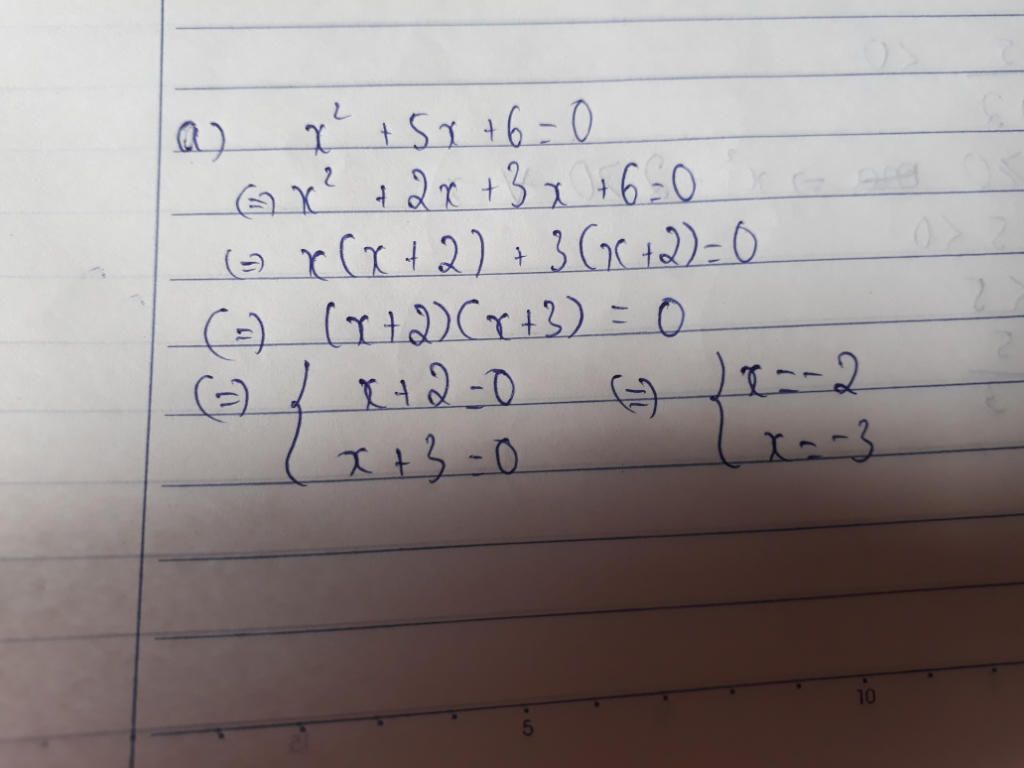 a) x² + 5x + 6 = 0
(=) x² + 2x + 3x + 6 = 0
(=) x(x + 2) + 3(x + 2) = 0
(=) (x + 2)(x + 3) = 0
(=) { x + 2 = 0 (=) { x = -2
x + 3 = 0 x = -3
5 10